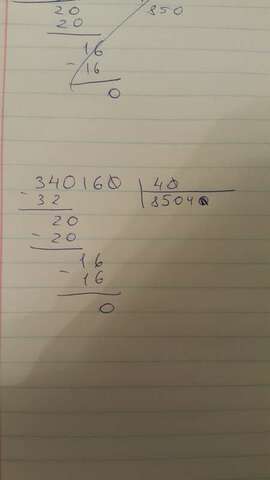 20
20
850
16
- 16
0
340160 40
- 32 8504
20
- 20
16
- 16
0